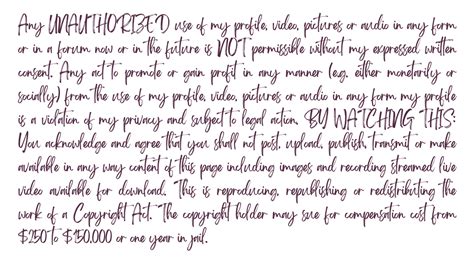 Any UNAUTHORIZED use of my profile, video, pictures or audio in any form
or in a forum now or in the future is NOT permissible without my expressed written
consent. Any act to promote or gain profit in any manner (e.g. either monetarily or
socially) from the use of my profile, video, pictures or audio in any form my profile
is a violation of my privacy and subject to legal action, BY WATCHING THIS:
You acknowledge and agree that you shall not post, upload, publish, transmit or make
available in any way content of this page including images and recording streamed live
video available for download. This is reproducing, republishing or redistributing the
work of a Copyright Act. The copyright holder may sue for compensation cost from
$250 to $150,000 or one year in jail.